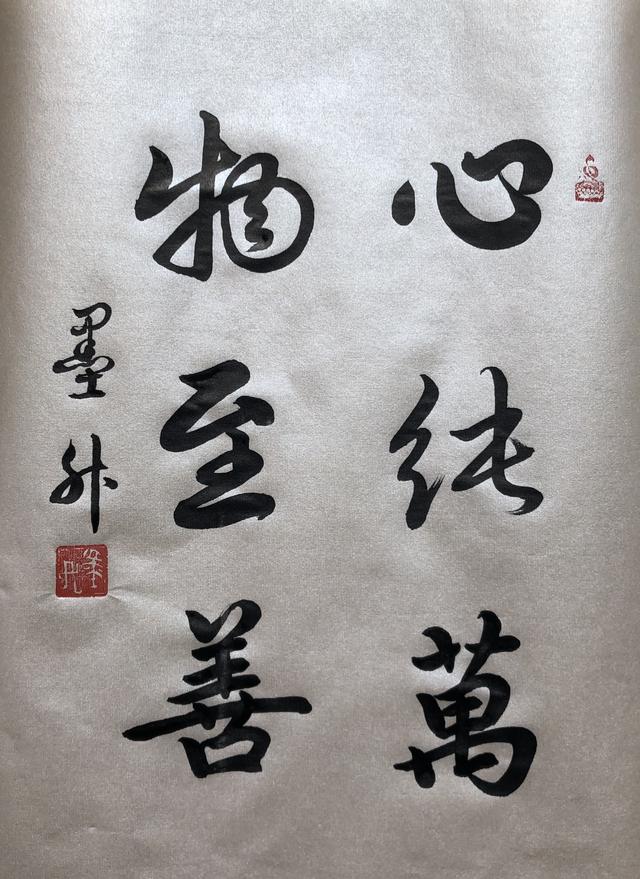 心純萬
物至善
墨升